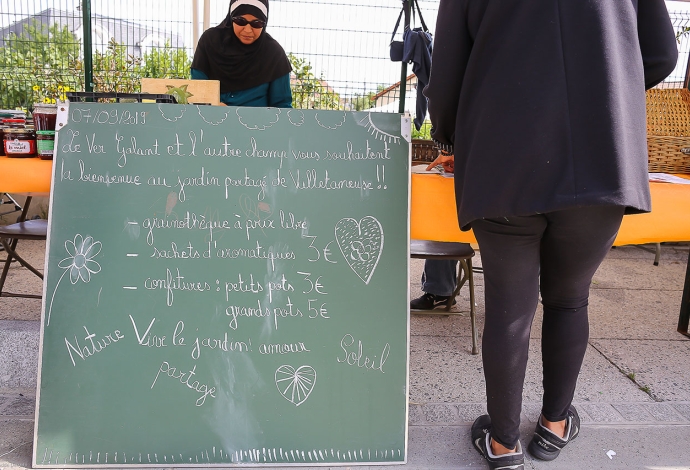 07/09/2019
Le Ver Galant et l'autre champ vous souhaitent
la bienvenue au jardin partagé de Villetaneuse !!
- grainothèque à prix libre
- sachets d'aromatiques 3€
- confitures : petits pots 3€
grands pots 5€
Nature Vive le jardin! amour Soleil
partage